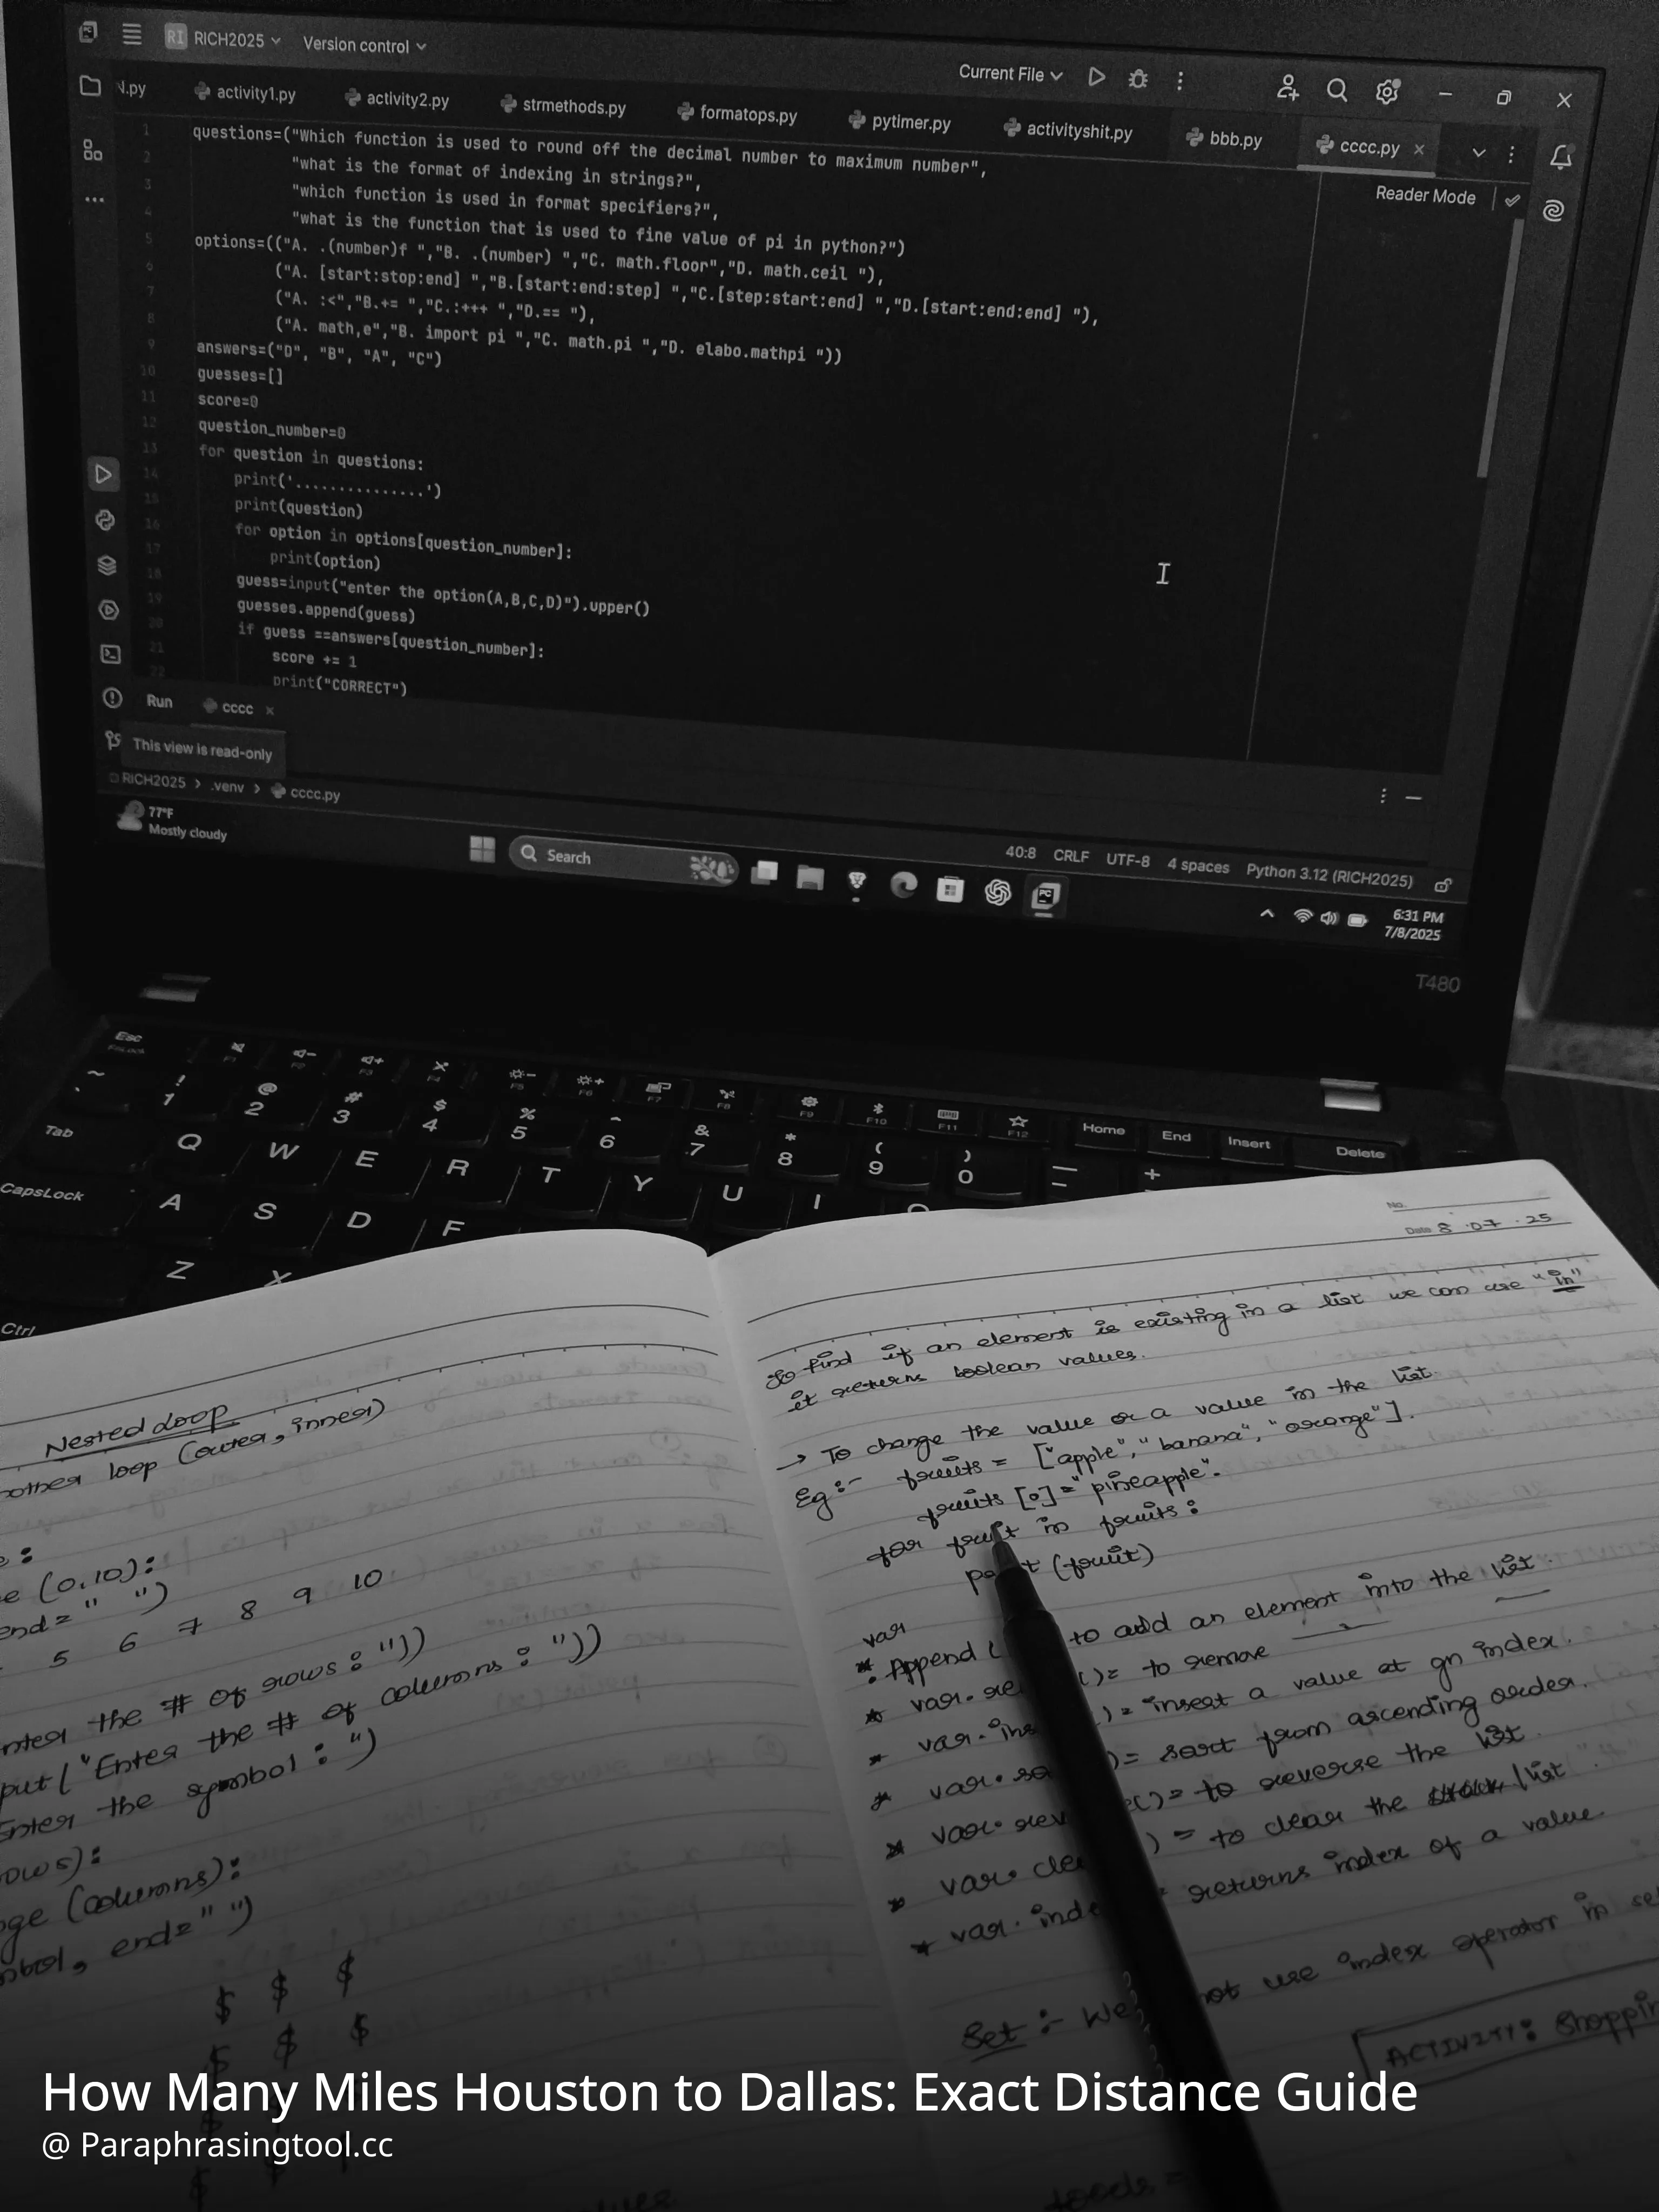 RI RICH2025 Version control
Current File
activity1.py activity2.py strmethods.py formatops.py pytimer.py activityshit.py bbb.py cccc.py
Reader Mode
1 questions=("Which function is used to round off the decimal number to maximum number",
2 "what is the format of indexing in strings?",
3 "which function is used in format specifiers?",
4 "what is the function that is used to fine value of pi in python?")
5 options=(("A. .(number)f ","B. .(number) ","C. math.floor","D. math.ceil "),
6 ("A. [start:stop:end] ","B.[start:end:step] ","C.[step:start:end] ","D.[start:end:end] "),
7 ("A. :<","B.+= ","C.:+++ ","D.== "),
8 ("A. math,e","B. import pi ","C. math.pi ","D. elabo.mathpi "))
9 answers=("D", "B", "A", "C")
10 guesses=[]
11 score=0
12 question_number=0
13 for question in questions:
14 print('...............')
15 print(question)
16 for option in options[question_number]:
17 print(option)
18 guess=input("enter the option(A,B,C,D)").upper()
19 guesses.append(guess)
20 if guess ==answers[question_number]:
21 score += 1
22 print("CORRECT")
Run cccc
This view is read-only
RICH2025 > .venv > cccc.py
40:8 CRLF UTF-8 4 spaces Python 3.12 (RICH2025)
77°F
Mostly cloudy
Search
6:31 PM
7/8/2025
T480
Esc F1 F2 F3 F4 F5 F6 F7 F8 F9 F10 F11 F12 Home End Insert Delete
~ ! 1 @ 2 # 3 $ 4 % 5 6 & 7 * 8 ( 9 ) 0 +
Tab Q W E R T Y U I O
CapsLock A S D F
Z X
Ctrl
Nested Loop
loop (outer, inner)
(0,10):
end=" ")
5 6 7 8 9 10
the # of rows : "))
("Enter the # of columns : "))
Enter the symbol : ")
(columns):
end=" ")
$ $ $
$ $ $
No.
Date 8 .07 .25
To find if an element is existing in a list we can use "in"
it returns boolean values.
→ To change the value or a value in the list.
Eg:- fruits = ["apple", "banana", "orange"].
fruits [0]="pineapple".
for fruit in fruits :
(fruit)
var
* Append ( to add an element into the list.
* var. ()= to remove
* var. )= insert a value at gn index.
* var. )= sort from ascending order.
* var. ()= to reverse the list.
* var. ) = to clear the /list.
* var. = returns index of a value.
Set :- We use index operator in
ACTIVITY:
How Many Miles Houston to Dallas: Exact Distance Guide
@ Paraphrasingtool.cc